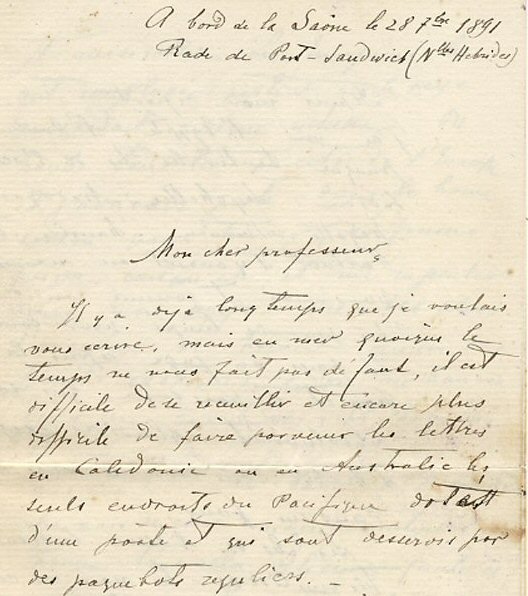 A bord de la Saône le 28 7bre 1891
Rade de Port-Sandwich (Nlles Hebrides)
Mon cher professeur,
Il y a déja longtemps que je voulais
vous ecrire, mais en mer quoique le
temps ne nous fait pas défaut, il est
difficile de se recueillir et encore plus
difficile de faire parvenir les lettres
en Caledonie ou en Australie les
seuls endroits du Pacifique
d'une poste et qui sont desservis par
des paquebots reguliers. _